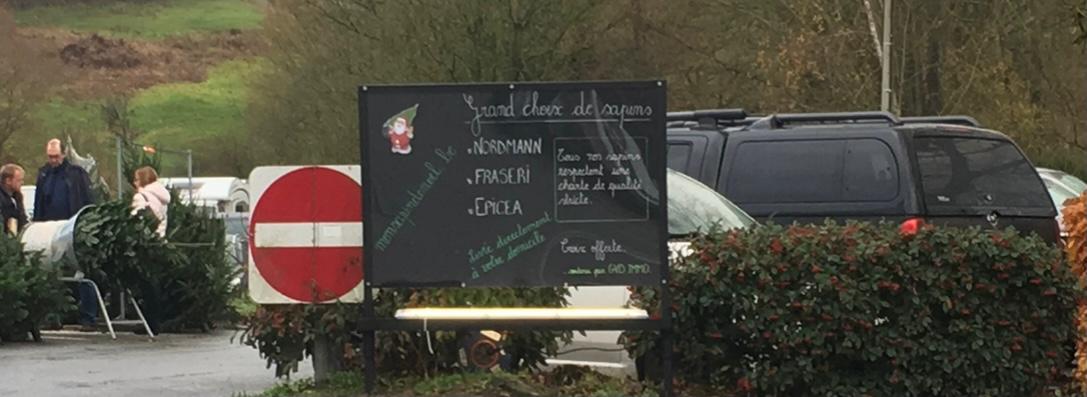 Grand choix de sapins
NORDMANN
FRASERI
EPICEA
Tous nos sapins
respectent une
charte de qualité
stricte.
monsapindenoel.be
Livré directement
à votre domicile
Croix offerte.
par GVD IMMO.